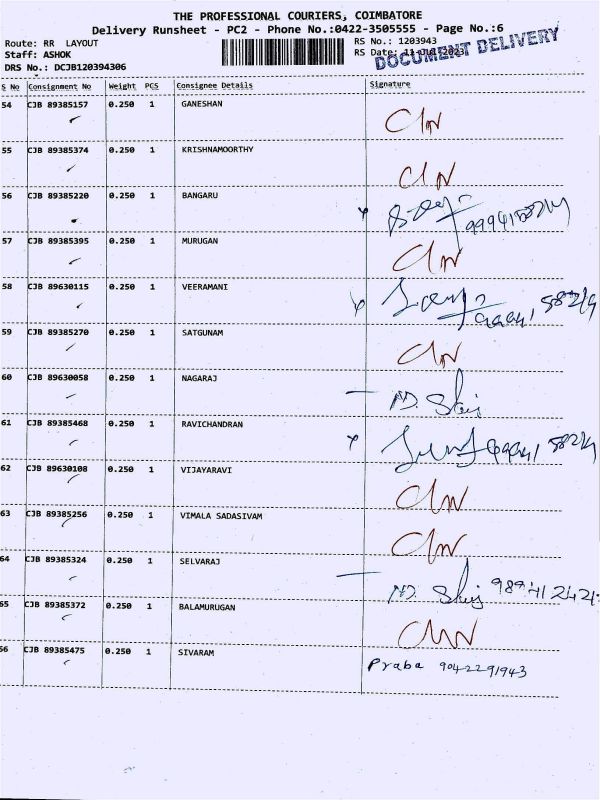 THE PROFESSIONAL COURIERS, COIMBATORE
Delivery Runsheet - PC2 - Phone No.:0422-3505555 - Page No.:6
Route: RR LAYOUT
Staff: ASHOK
DRS No.: DCJB120394306
RS No.: 1203943
RS Date: 11-Jul-2023
DOCUMENT DELIVERY
S No Consignment No Weight PCS Consignee Details Signature
54 CJB 89385157 0.250 1 GANESHAN
55 CJB 89385374 0.250 1 KRISHNAMOORTHY
56 CJB 89385220 0.250 1 BANGARU
57 CJB 89385395 0.250 1 MURUGAN
58 CJB 89630115 0.250 1 VEERAMANI
59 CJB 89385270 0.250 1 SATGUNAM
60 CJB 89630058 0.250 1 NAGARAJ
61 CJB 89385468 0.250 1 RAVICHANDRAN
62 CJB 89630108 0.250 1 VIJAYARAVI
63 CJB 89385256 0.250 1 VIMALA SADASIVAM
64 CJB 89385324 0.250 1 SELVARAJ
65 CJB 89385372 0.250 1 BALAMURUGAN
66 CJB 89385475 0.250 1 SIVARAM Praba 9042291943